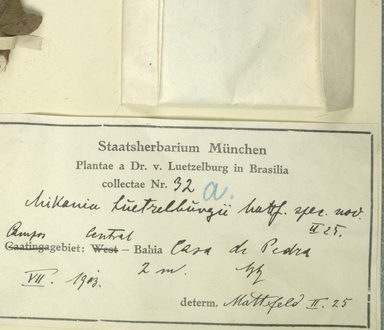 Staatsherbarium München
Plantae a Dr. v. Luetzelburg in Brasilia
collectae Nr. 32 a.
Mikania Luetzelburgii Mattf. spec. nov.
II 25.
Campos Central
Caatingagebiet: West – Bahia Casa de Pedra
VII. 1913. 2 m.
determ. Mattfeld II. 25